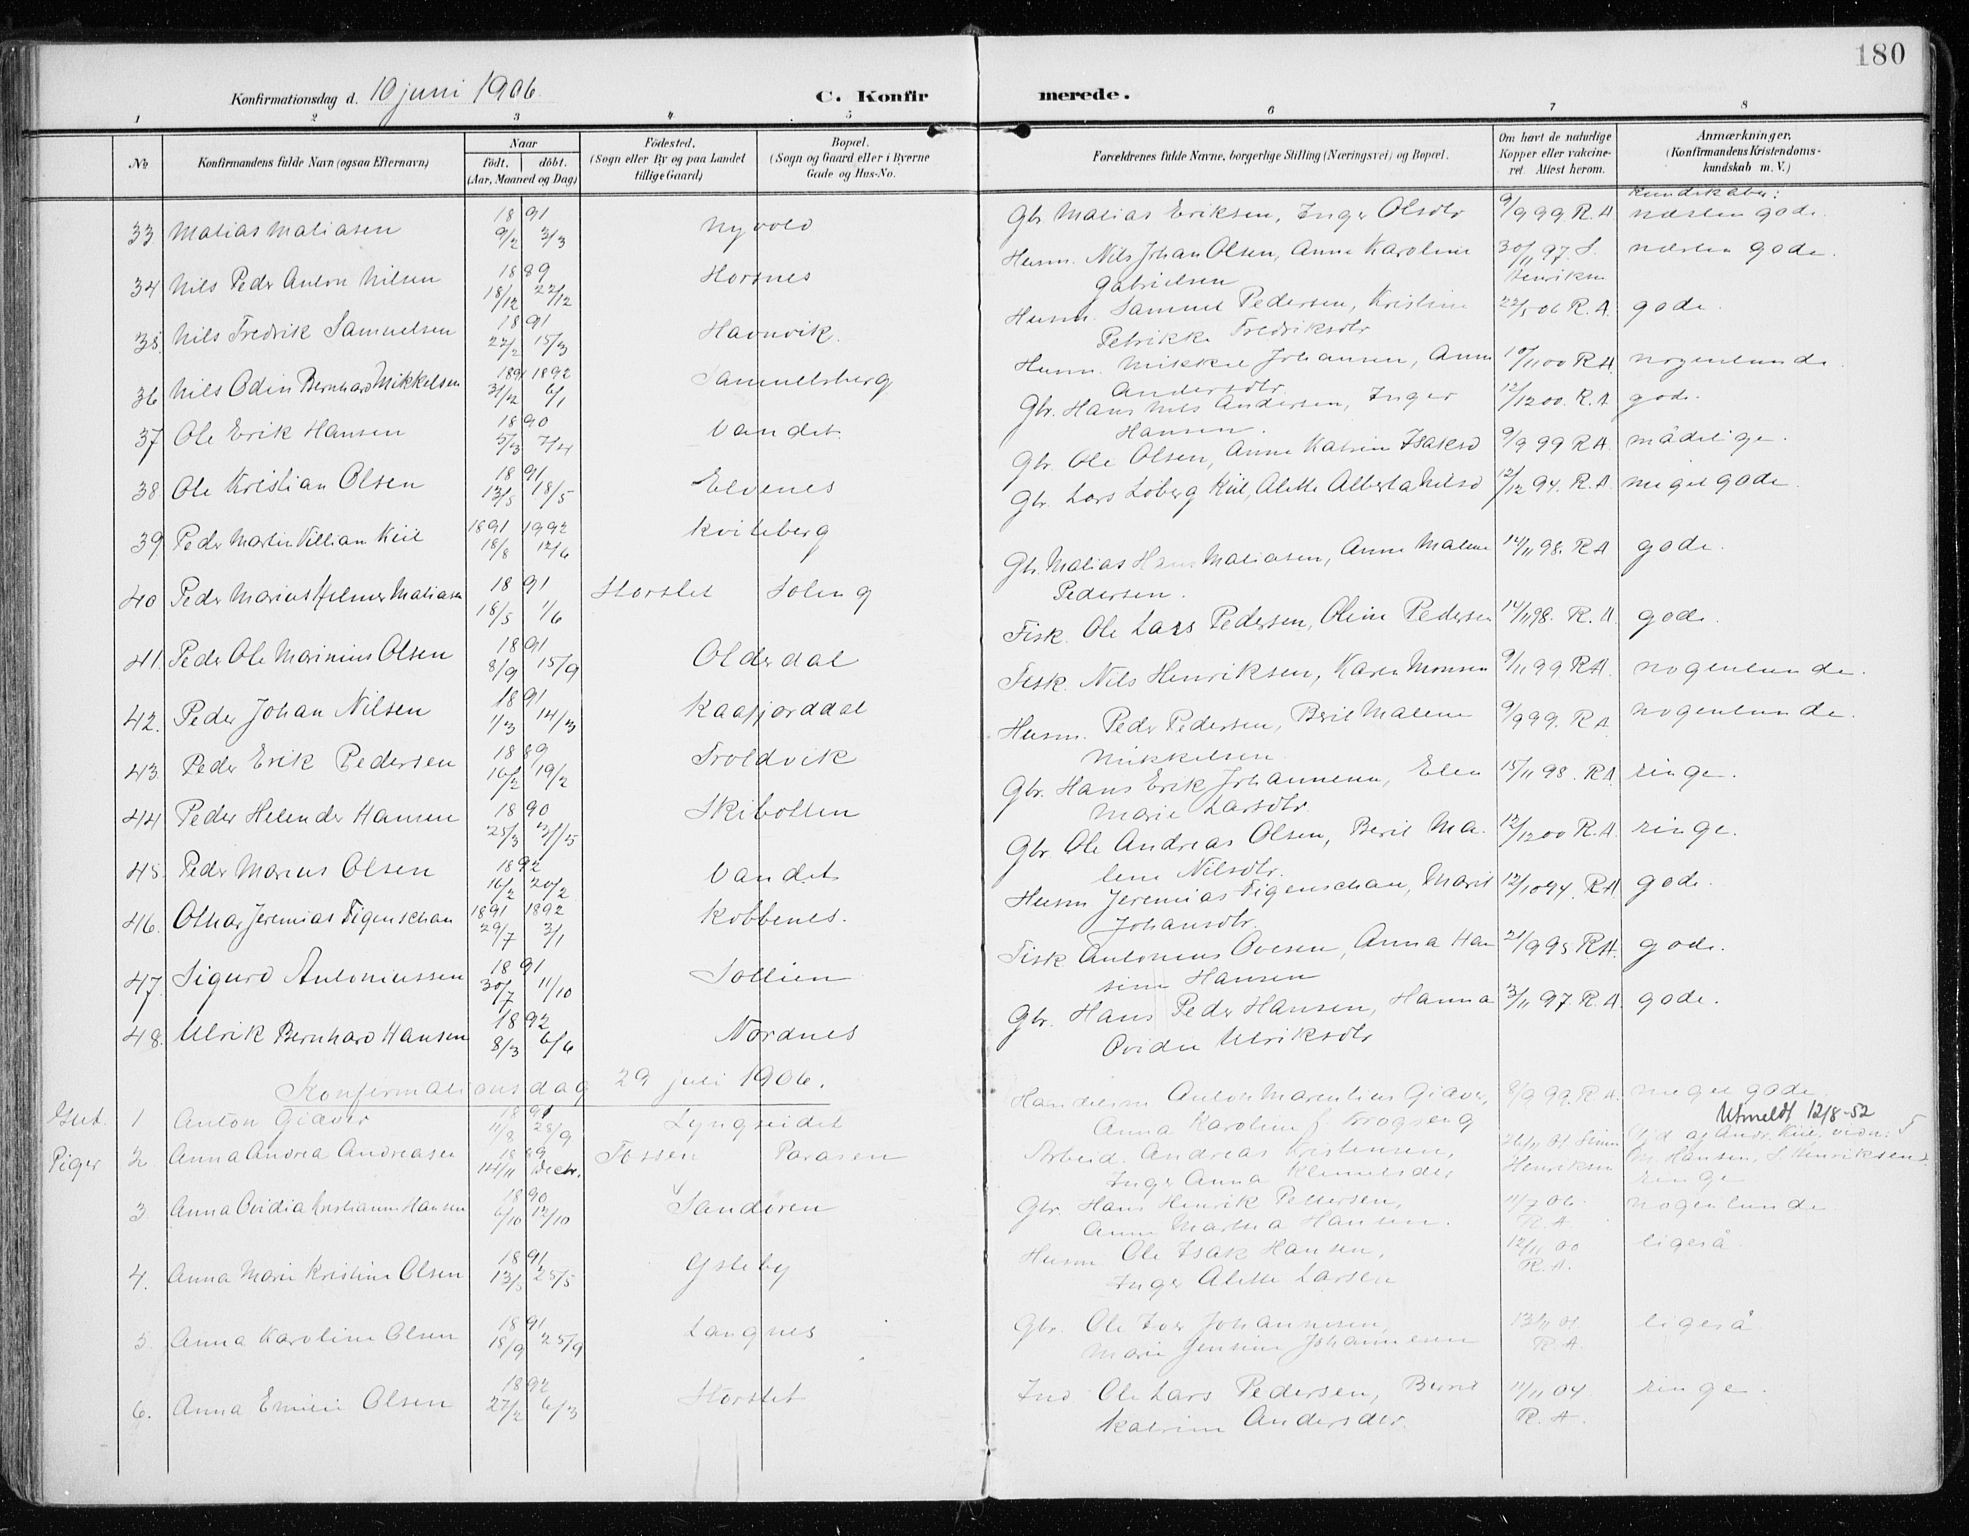 180
Konfirmationsdag d. 10 juni 1906.
C. Konfirmerede.
1 2 3 4 5 6 7 8
No
Konfirmandens fulde Navn (ogsaa Efternavn)
Naar
født. døbt.
(Aar, Maaned og Dag)
Fødested.
(Sogn eller By og paa Landet
tillige Gaard)
Bopæl.
(Sogn og Gaard eller i Byerne
Gade og Hus-No.
Forældrenes fulde Navne, borgerlige Stilling (Næringsvei) og Bopæl.
Om havt de naturlige
Kopper eller vakcine-
ret. Attest herom.
Anmærkninger.
(Konfirmandens Kristendoms-
kundskab m. V.)
Kundskaber:
33 Matias Matiasen 1891 9/2 3/3 Nyvold Gbr Matias Eriksen, Inger Olsdtr 9/9 99 R. A næsten gode.
34 Nils Peder Anton Nilsen 1889 18/12 22/12 Horsnes Husm. Nils Johan Olsen, Anne Karoline 30/11 97. S. næsten gode.
Gabrielsen Henriksen
35. Nils Fredrik Samuelsen 1891 22/2 15/3 Havnvik. Husm. Samuel Pedersen, Kristine 22/5 06 R. A. gode.
Petrikke Fredriksdtr
36 Nils Odin Bernhard Mikkelsen 1891 1892 31/12 6/1 Samuelsberg Husm. Mikkel Johansen, Anne 10/11 00 R A. nogenlunde
Andersdtr
37 Ole Erik Hansen 1890 5/3 7/4 Vandet Gbr. Hans Nils Andersen, Inger 12/12 00. R. A gode.
Hansen.
38 Ole Kristian Olsen 1891 13/5 18/5 Elvenes Gbr. Ole Olsen, Anne Katrine Isaksd 9/9 99 R A. mådelige.
39 Peder Martin Villian Kiil 1891 1992 18/8 12/6 Kviteberg Gbr. Lars Loberg Kiil, Alette Alberta Nilsd 12/12 94. R. A. meget gode.
40 Peder Marius Helmer Matiasen 1891 18/5 1/6 Storslet Soleng Gbr. Matias Hans Matiasen, Anne Malene 14/11 98. R A gode.
Pedersen.
41. Peder Ole Marinius Olsen 1891 8/9 15/9 Olderdal Fisk. Ole Lars Pedersen, Oline Pedersen 14/11 98. R. A. gode.
42. Peder Johan Nilsen 1891 1/3 14/3 Kaafjorddal Fisk. Nils Henriksen, Karen Monsen 9/11 99 R A. nogenlunde.
43. Peder Erik Pedersen 1889 16/2 19/2 Troldvik Husm. Peder Pedersen, Beril Malene 9/9 99. R A. nogenlunde.
Mikkelsen
44 Peder Helender Hansen 1890 25/3 Skibotten Gbr. Hans Erik Johannesen, Elen 15/11 98. R A. ringe.
Marie Larsdtr
45. Peder Marius Olsen 1892 16/2 20/2 Vandet Gbr. Ole Andreas Olsen, Beril Ma- 12/12 00 R. A. ringe.
lene Nilsdtr.
46. Otnar Jeremias Figenschau 1891 1892 29/7 3/1 Kobbenes. Husm Jeremias Figenschau, Marit 12/10 94. R A gode.
Johansdtr.
47. Sigurd Antoniussen 1891 30/7 11/10 Sollien Fisk Antonius Ovesen, Anna Han 21/9 95 R A. gode.
sine Hansen
48. Ulrik Bernhard Hansen 1892 8/3 6/6 Nordnes Gbr. Hans Peder Hansen, Hanna 3/11 97. R. A. gode.
Ovidie Ulriksdtr
Konfirmationsdag 29 juli 1906.
Gut. 1 Anton Giæver 1891 11/8 28/9 Lyngseidet Handelsm Anton Marentius Giæver, 8/9 99. R A. meget gode
Anna Karoline f. Krogseng Utmeldt 12/8-52
Piger 2 Anna Andrea Andreasen 1889 14/11 Decbr. Tossen Parasen Arbeid. Andreas Kristensen, 26/11 01 Simon Hjd af Andr. Kiil, vidn:
Inger Anna Klemetsdtr Henriksen M. Hansen, S. Henriksen
ringe
3. Anna Ovidia Kristianne Hansen 1890 6/10 12/10 Sandøren Gbr. Hans Henrik Pettersen, 11/7 06. nogenlunde
Anne Martha Hansen. R. A.
4. Anna Marie Kristine Olsen 1891 13/5 25/5 Gsteby Husm Ole Isak Hansen, 12/11 00 ligeså
Inger Alette Larsen R. A.
5. Anna Karoline Olsen 1891 18/9 25/9 Langnes Gbr. Ole Iver Johannesen, 13/11 01 ligeså
Marie Jensine Johannesen R. A.
6. Anna Emilie Olsen 1892 27/2 6/3 Storslet Ind Ole Lars Pedersen, Beret 11/11 04 ringe.
Katrine Andersdtr. R. A.